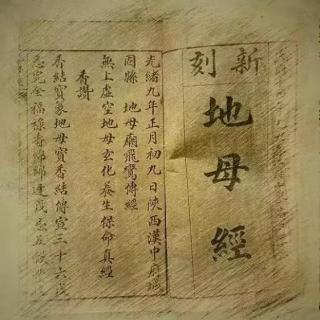 新刻
地母經
光緒九年正月初九日陝西漢中府城
固縣 地母廟飛鸞傳經
無上虛空地母玄化養生保命真經
香讚
香結寶篆地母寶香結傳宣三十六
完全福祿壽綿綿連